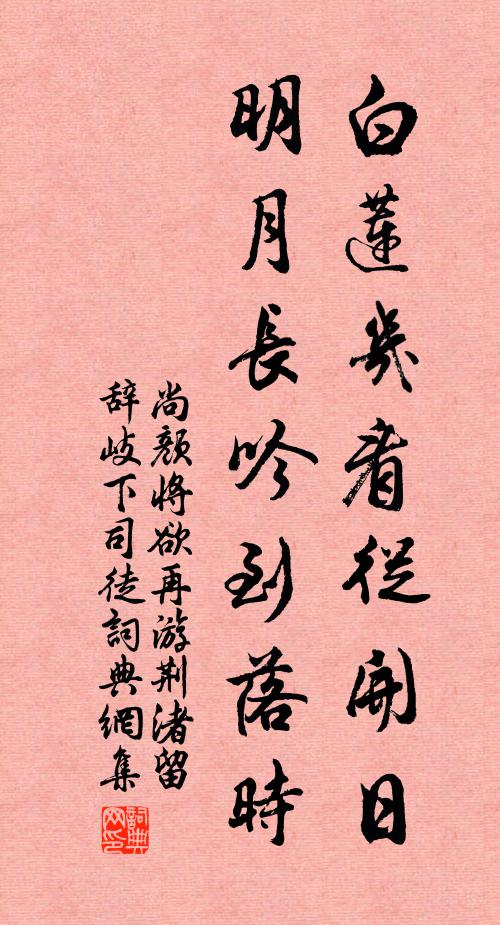 白蓮幾看從開日
明月長吟到落時
尚顏將欲再游荆渚留
辞岐下司徒詞典網集
詞典网印